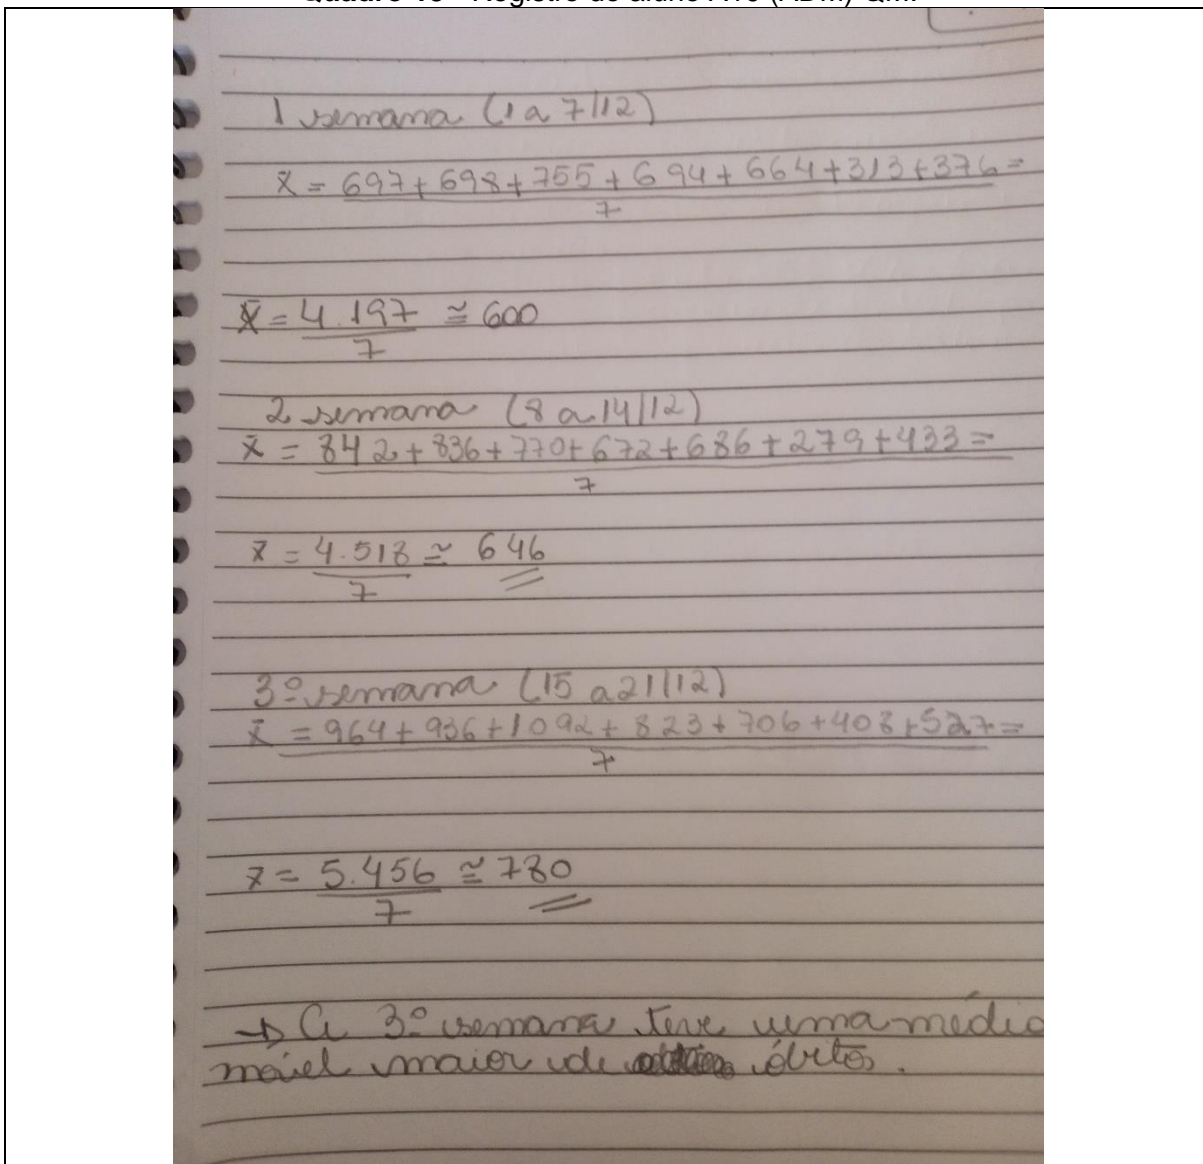 1 semana (1 a 7/12)
x̄ = 697+698+755+694+664+313+376 =
7
x̄ = 4.197 ≅ 600
7
2 semana (8 a 14/12)
x̄ = 842+836+770+672+686+279+433 =
7
x̄ = 4.518 ≃ 646
7
3º semana (15 a 21/12)
x̄ = 964+936+1092+823+706+408+527 =
7
x̄ = 5.456 ≅ 780
7
→ A 3º semana teve uma média
móvel maior de óbitos.